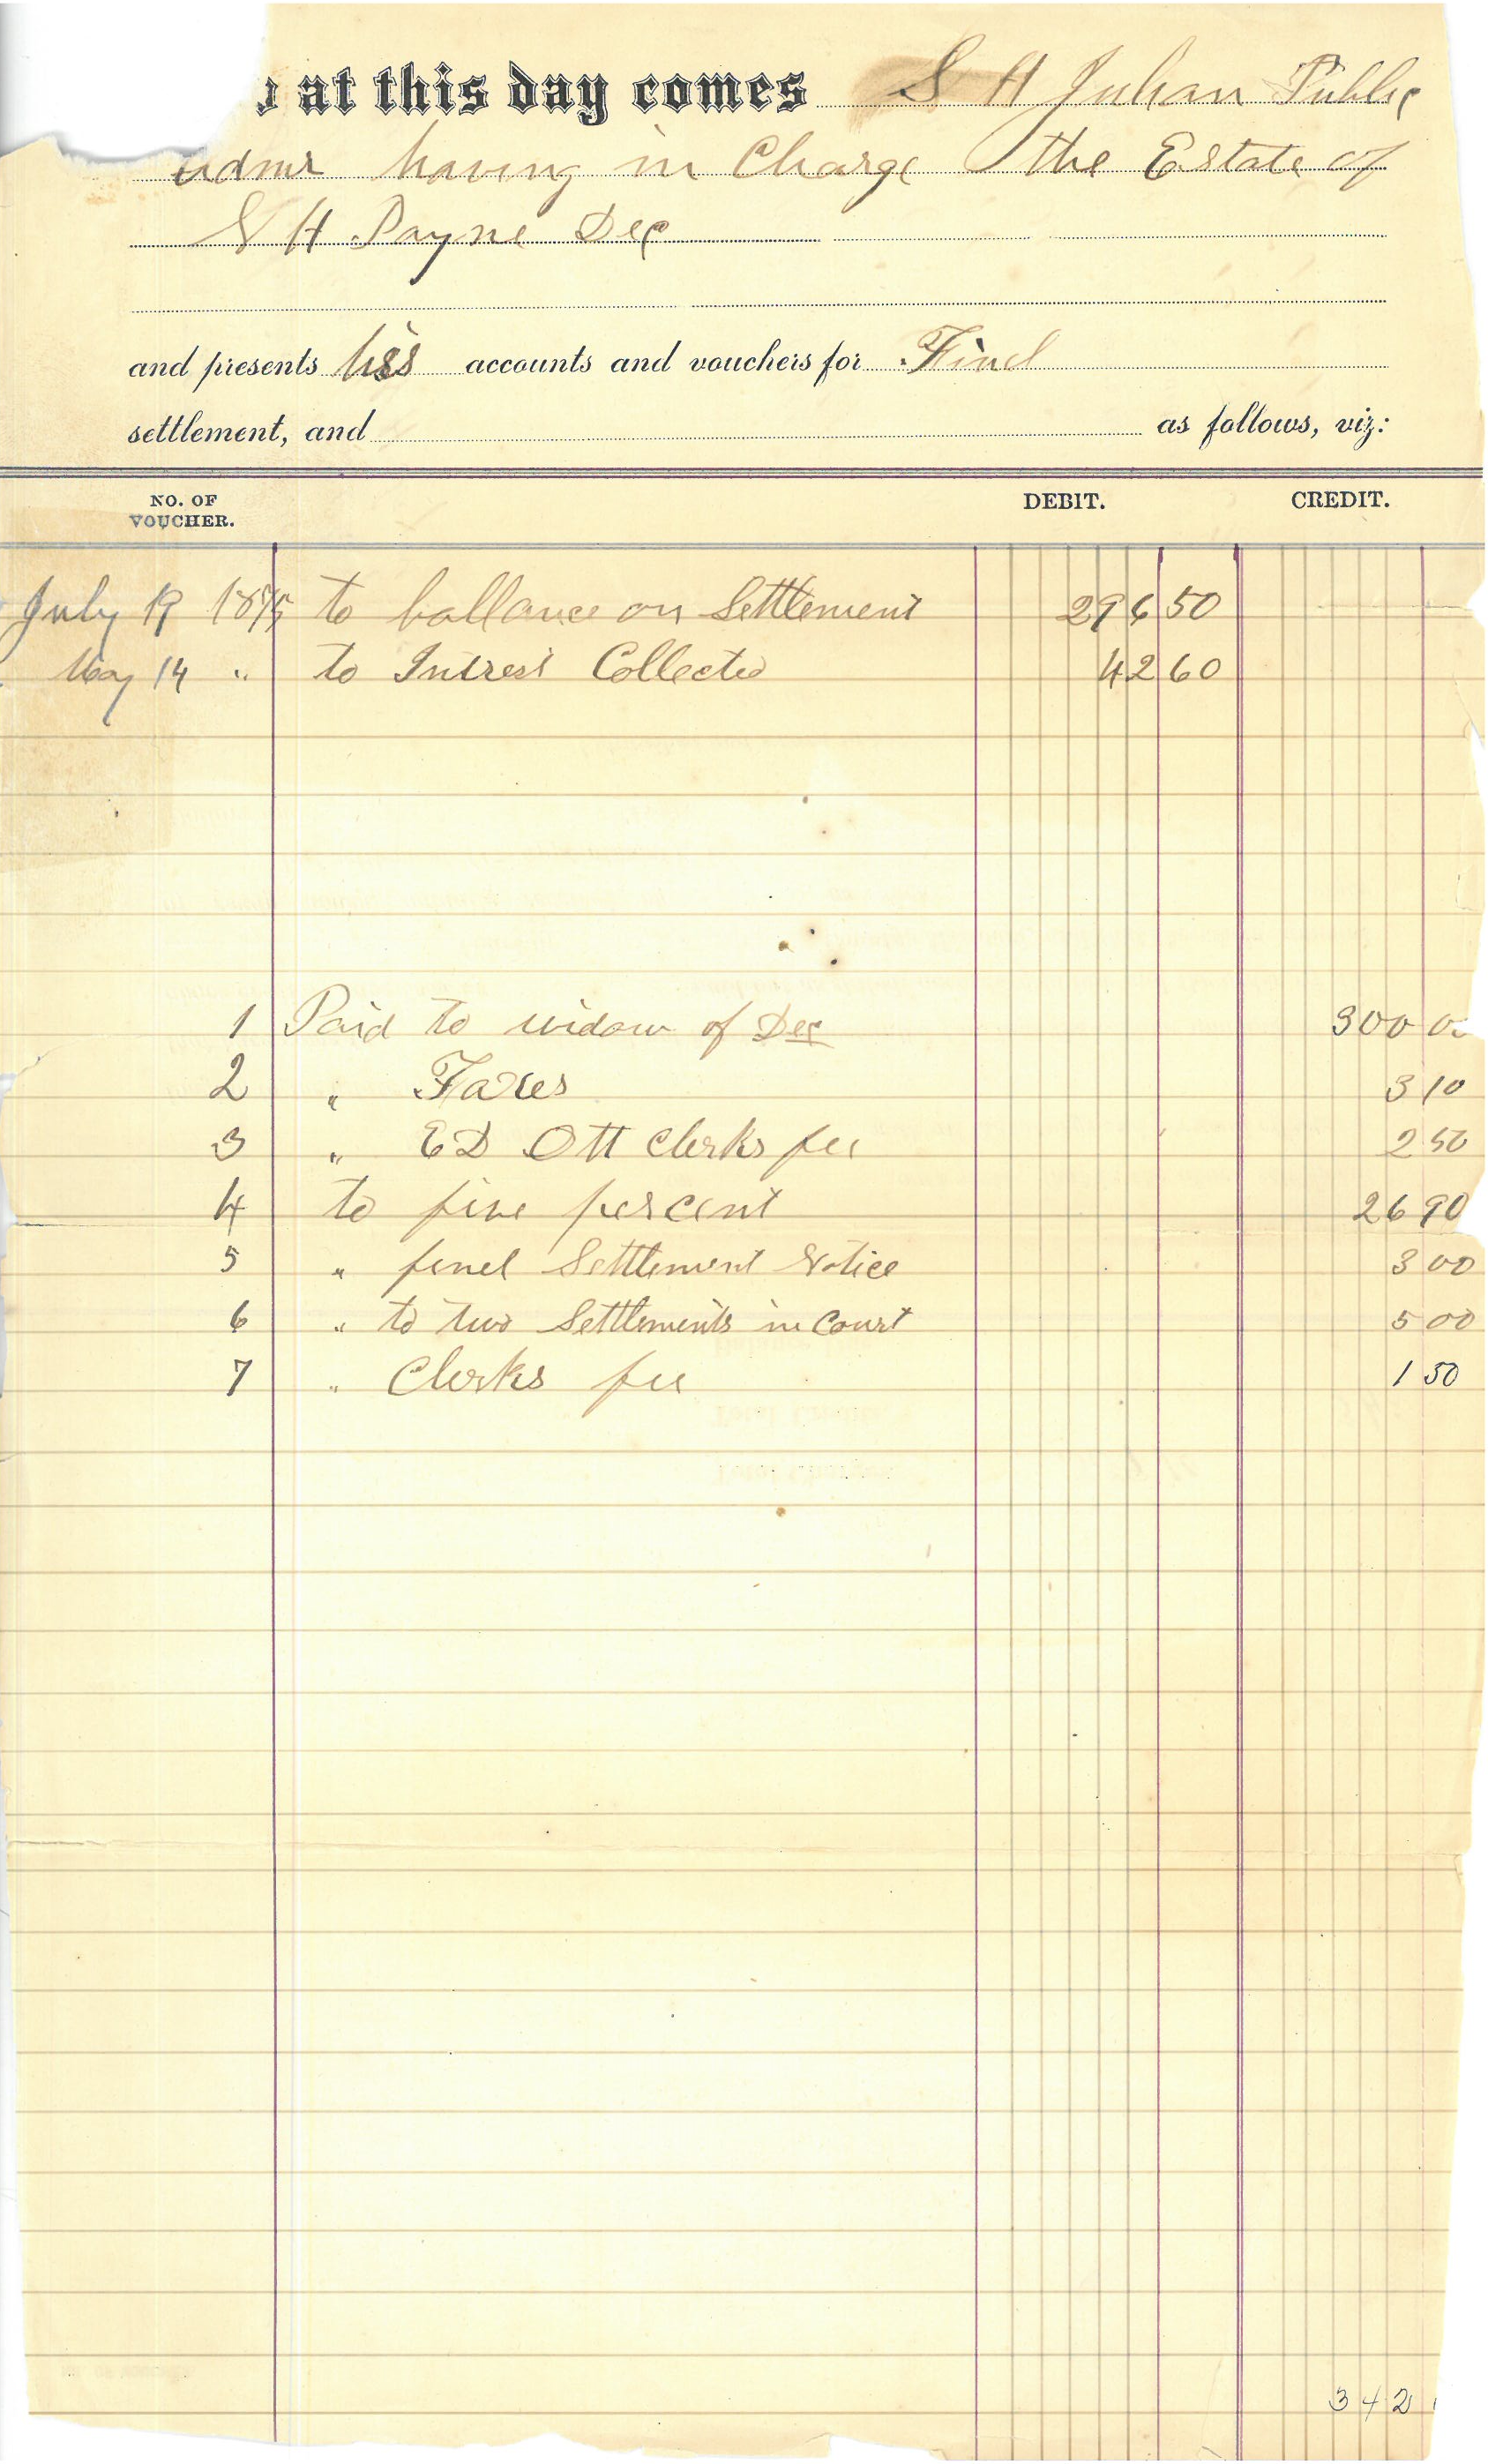 at this day comes S H Julian Public
admr having in Charge the Estate of
N H Payne Dec
and presents his accounts and vouchers for Finel
settlement, and as follows, viz:
NO. OF VOUCHER. DEBIT. CREDIT.
July 19 1875 to ballance on Settlement 296 50
May 14 " to Intrest Collected 42 60
1 Paid to widow of Dec 300 0
2 " Taxes 3 10
3 " E D Ott Clerks fee 2 50
4 to five percent 26 90
5 " finel Settlement Notice 3 00
6 " to two Settlements in Court 5 00
7 " Clerks fee 1 50
342